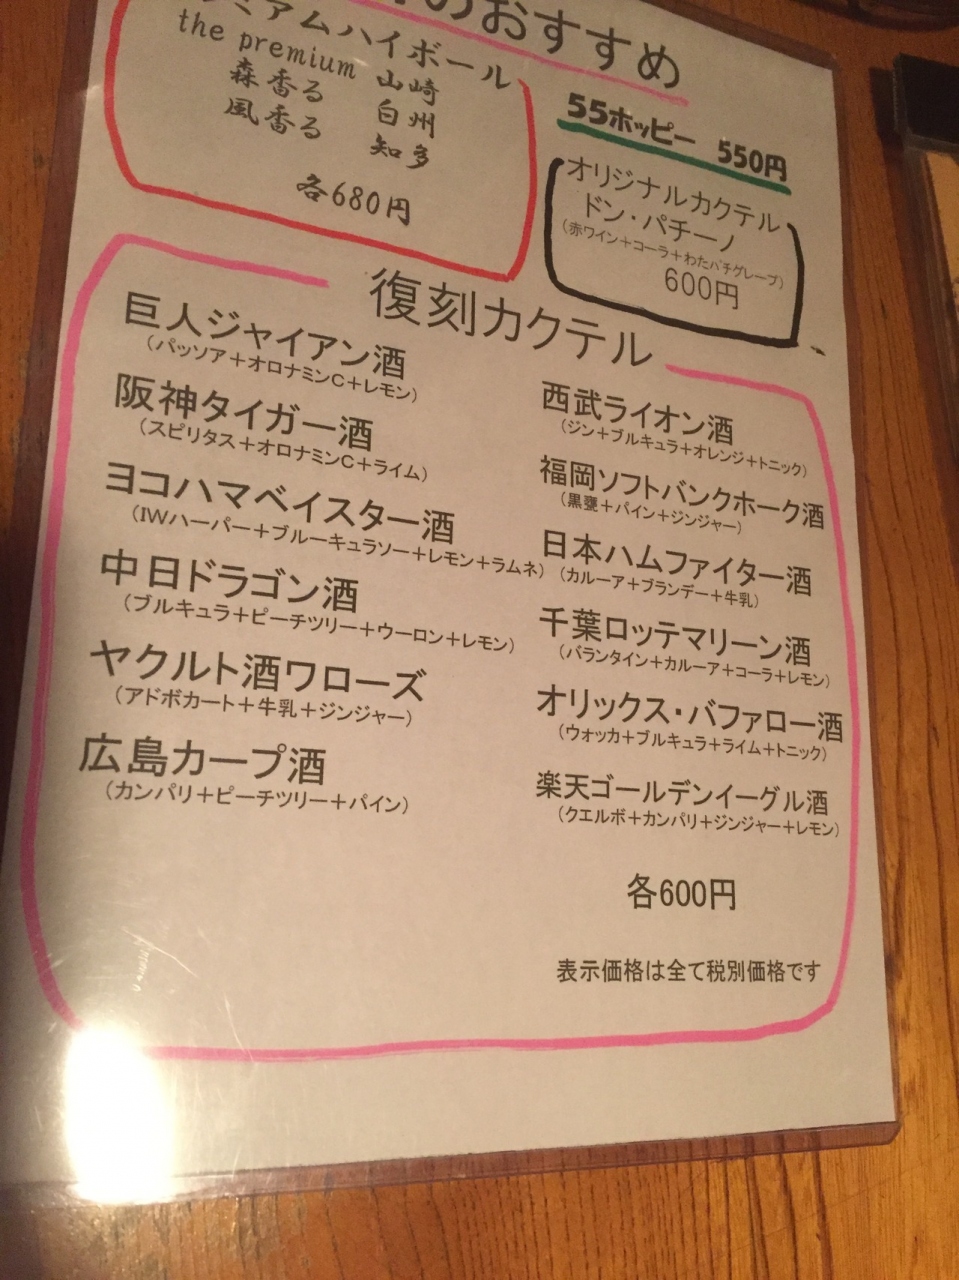 のおすすめ
ミアムハイボール
the premium 山崎
森香る 白州
風香る 知多
各680円
55ホッピー 550円
オリジナルカクテル
ドン・パチーノ
（赤ワイン＋コーラ＋わたパチグレープ）
600円
復刻カクテル
巨人ジャイアン酒
（パッソア＋オロナミンC＋レモン）
阪神タイガー酒
（スピリタス＋オロナミンC＋ライム）
ヨコハマベイスター酒
（IWハーパー＋ブルーキュラソー＋レモン＋ラムネ）
中日ドラゴン酒
（ブルキュラ＋ピーチツリー＋ウーロン＋レモン）
ヤクルト酒ワローズ
（アドボカート＋牛乳＋ジンジャー）
広島カープ酒
（カンパリ＋ピーチツリー＋パイン）
西武ライオン酒
（ジン＋ブルキュラ＋オレンジ＋トニック）
福岡ソフトバンクホーク酒
（黒甕＋パイン＋ジンジャー）
日本ハムファイター酒
（カルーア＋ブランデー＋牛乳）
千葉ロッテマリーン酒
（バランタイン＋カルーア＋コーラ＋レモン）
オリックス・バファロー酒
（ウォッカ＋ブルキュラ＋ライム＋トニック）
楽天ゴールデンイーグル酒
（クエルボ＋カンパリ＋ジンジャー＋レモン）
各600円
表示価格は全て税別価格です